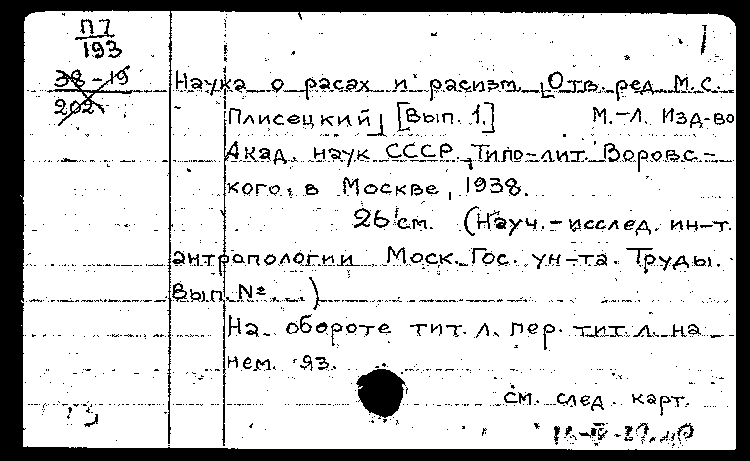 П7
193
38-19
202
1
Наука о расах и расизм. [Отв. ред М.С.
Плисецкий] [Вып. 1.] М.-Л. Изд-во
Акад. наук СССР, Типо-лит. Воровс-
кого, в Москве, 1938.
26 см. (Науч.-исслед. ин-т.
антропологии Моск. Гос. ун-та. Труды.
Вып. № ...)
На обороте тит. л. пер. тит. л. на
нем. яз.
см. след. карт.